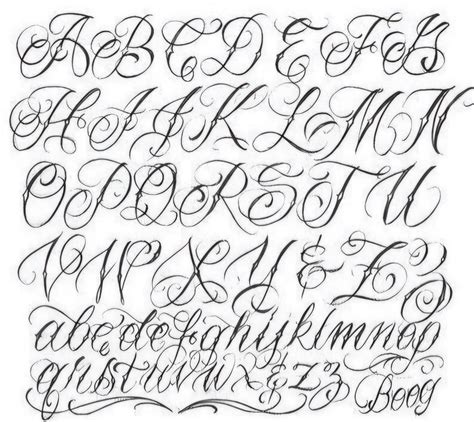 A B C D E F G
H I J K L M N
O P Q R S T U
V W X Y & Z Z
a b c d e f g h i j k l m n o p
q r s t u v w x y & z z Boog